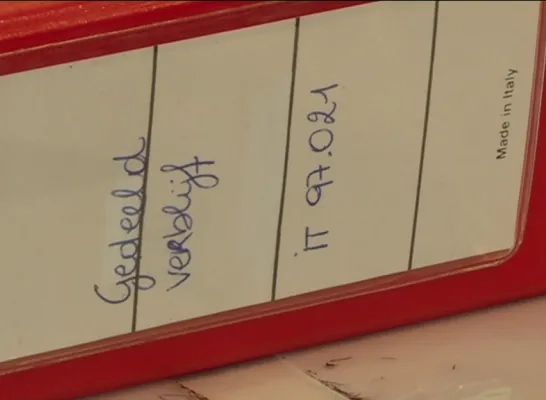 Gedeeld
verblijf
iT 97.021
Made in Italy